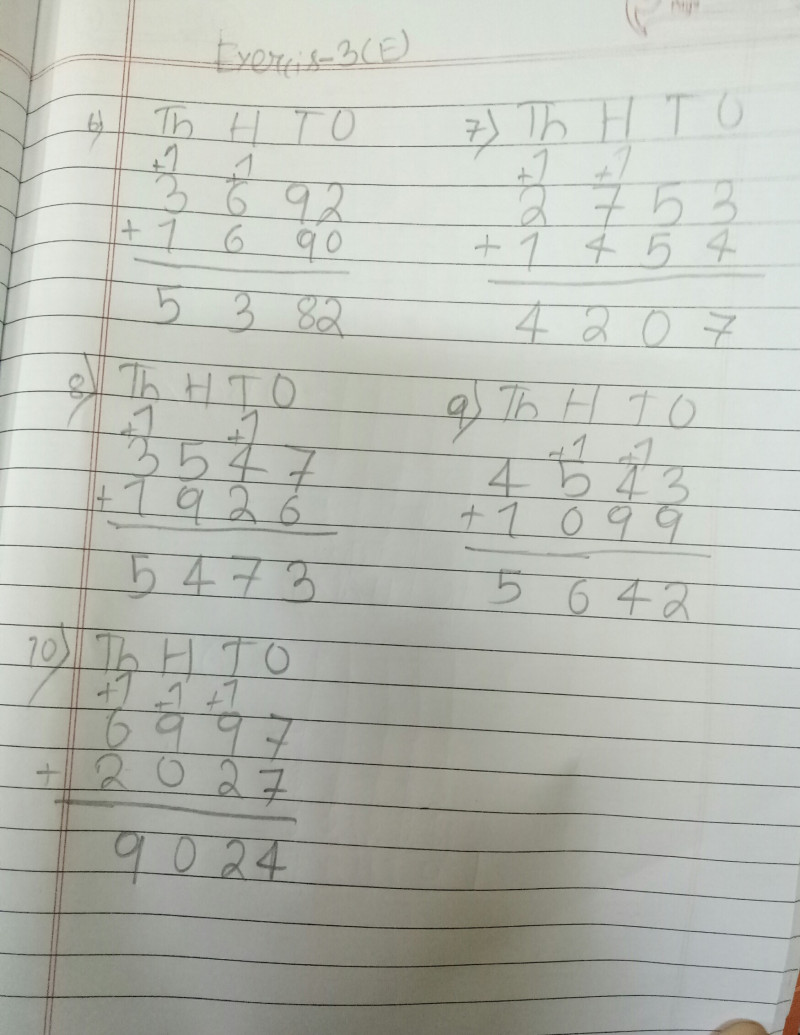 Exercis-3(E)
6) Th H T O
+1 +1
3 6 9 2
+ 1 6 9 0
5 3 8 2
7) Th H T O
+1 +1
2 7 5 3
+ 1 4 5 4
4 2 0 7
8) Th H T O
+1 +1
3 5 4 7
+ 1 9 2 6
5 4 7 3
9) Th H T O
+1 +1
4 5 4 3
+ 1 0 9 9
5 6 4 2
10) Th H T O
+1 +1 +1
6 9 9 7
+ 2 0 2 7
9 0 2 4